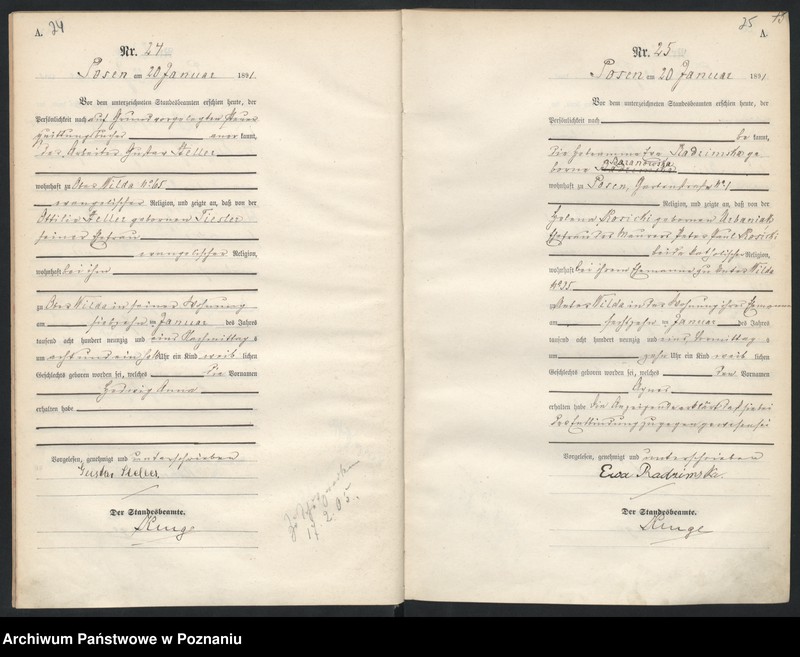 A. 24
Nr. 24
Posen am 20 Januar 1891.
Vor dem unterzeichneten Standesbeamten erschien heute, der
Persönlichkeit nach auf Grund vorgelegten
Quittungsbuches aner kannt,
der Arbeiter Gustav Steller
wohnhaft zu Ober Wilda No 65
evangelischer Religion, und zeigte an, daß von der
Ottilie Steller gebornen Tiesler
seiner Ehefrau
evangelischer Religion,
wohnhaft bei ihm
zu Ober Wilda in seiner Wohnung
am siebzehn ten Januar des Jahres
tausend acht hundert neunzig und eins Nachmittags
um acht und ein halb Uhr ein Kind weib lichen
Geschlechts geboren worden sei, welches die Vornamen
Hedwig Anna
erhalten habe
Vorgelesen, genehmigt und unterschrieben
Gustav Steller.
Der Standesbeamte.
17. 2. 05.
25
A.
Nr. 25
Posen am 20 Januar 1891.
Vor dem unterzeichneten Standesbeamten erschien heute, der
Persönlichkeit nach
be kannt,
die Hebeamme Ewa Radzimska ge
Baranowska
borne
wohnhaft zu Posen, Gartenstraße No 1
Religion, und zeigte an, daß von der
Helena Kosicki gebornen Urbaniak
Ehefrau des Maurers Peter Paul Kosicki
beide katholischer Religion,
wohnhaft bei ihrem Ehemanne zu Unter Wilda
No 35
zu Unter Wilda in der Wohnung ihres Ehemannes
am sechszehn ten Januar des Jahres
tausend acht hundert neunzig und eins Vormittags
um zehn Uhr ein Kind weib lichen
Geschlechts geboren worden sei, welches den Vornamen
Agnes
erhalten habe die Anzeigende erklärte, daß sie bei
der Entbindung zugegen gewesen sei
Vorgelesen, genehmigt und unterschrieben
Ewa Radzimska.
Der Standesbeamte.
Archiwum Państwowe w Poznaniu